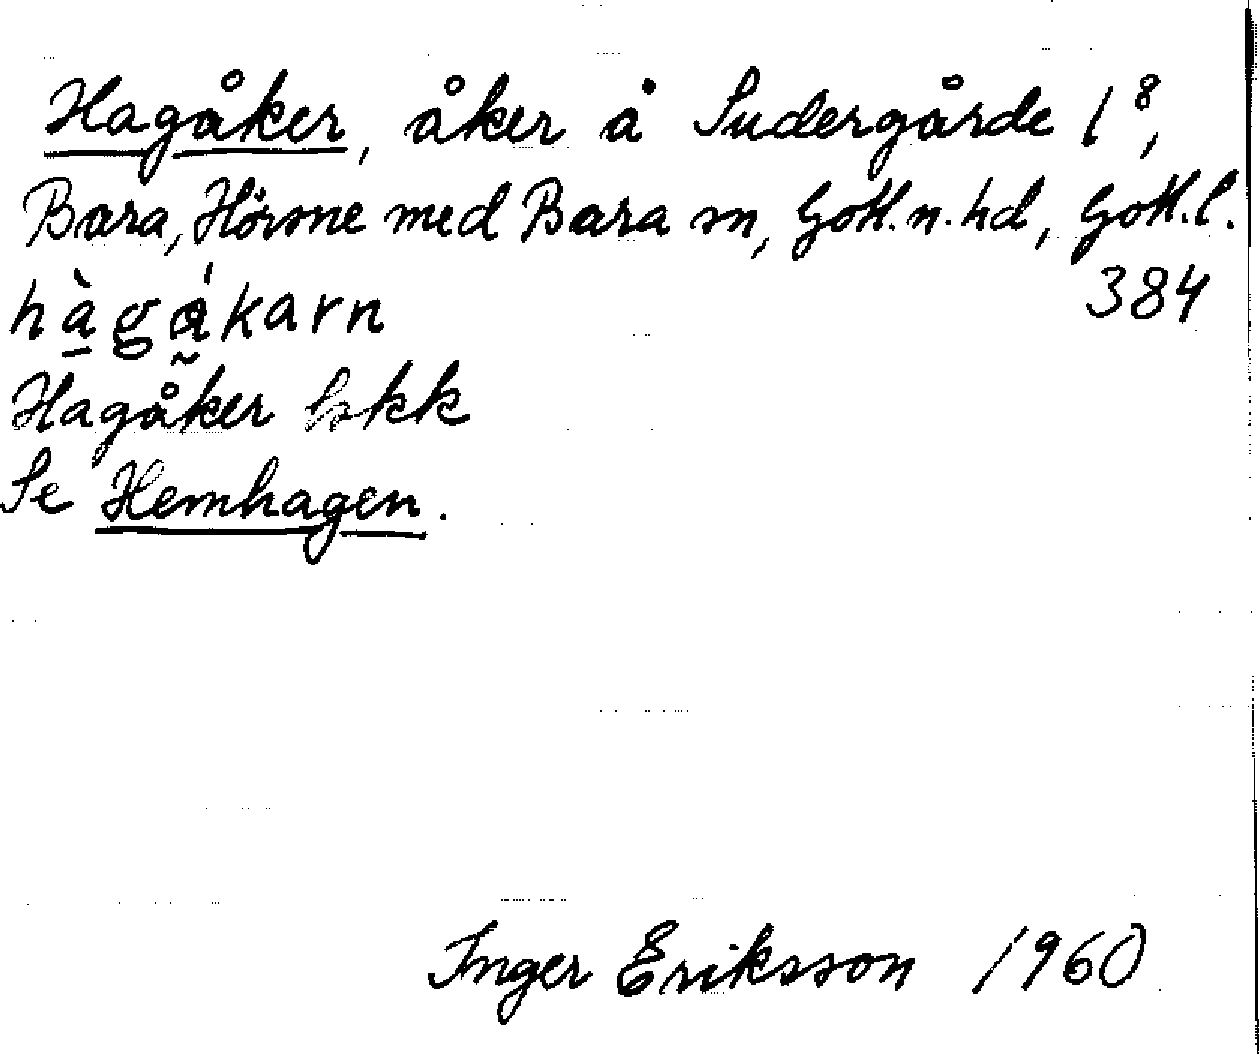 Hagåker, åker å Sudergårde 1⁸,
Bara, Hörsne med Bara sn, Gotl.n.hd, Gotl.l.
384
hàgåkarn
Hagåker hskk
Se Hemhagen.
Inger Eriksson 1960